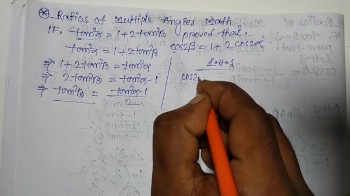 Ratios of Multiple Angles Math
If, tan²α = 1+2tan²β proved that,
tan²α = 1+2tan²β cos2β = 1+2cos2α
⇒ 1+2tan²β = tan²α L.H.S
⇒ 2tan²β = tan²α-1 cos2
⇒ tan²β = tan²α-1
2